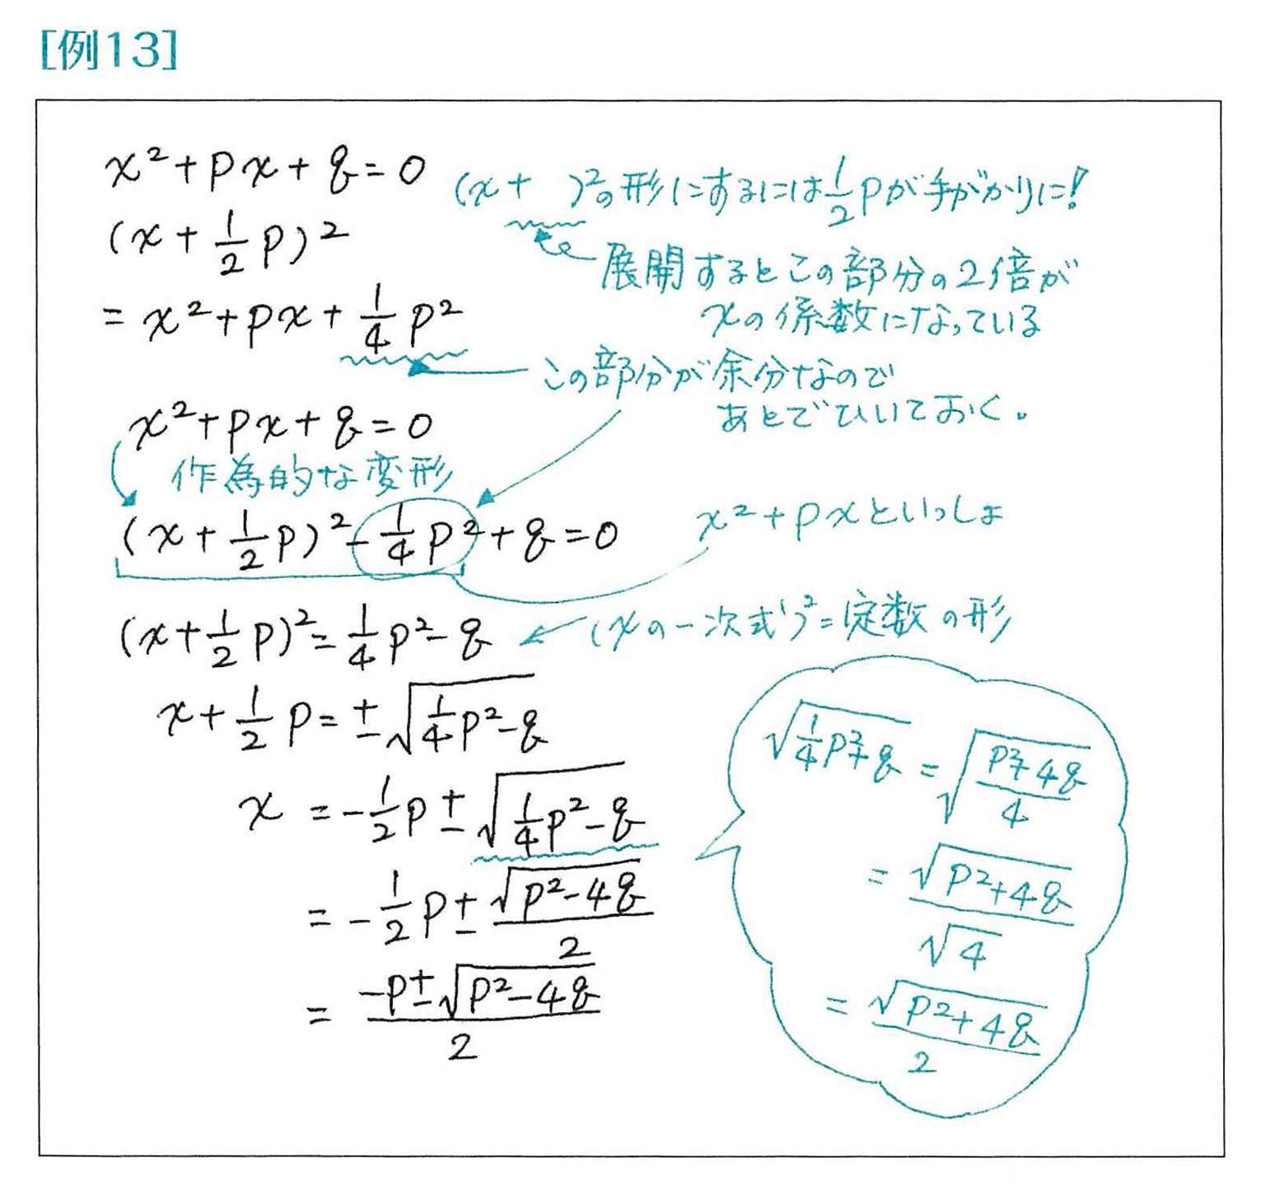 [例13]
x²+px+q=0
(x+ )²の形にするには1/2pが手がかりに!
(x+1/2p)²
展開するとこの部分の2倍が
xの係数になっている
=x²+px+1/4p²
この部分が余分なので
あとでひいておく。
x²+px+q=0
作為的な変形
(x+1/2p)²-1/4p²+q=0
x²+pxといっしょ
(x+1/2p)²=1/4p²-q
(xの一次式)²=定数の形
x+1/2p=±√(1/4p²-q)
x=-1/2p±√(1/4p²-q)
=-1/2p±√(p²-4q)/2
=(-p±√(p²-4q))/2
√(1/4p²+q)=√((p²+4q)/4)
=√(p²+4q)/√4
=√(p²+4q)/2